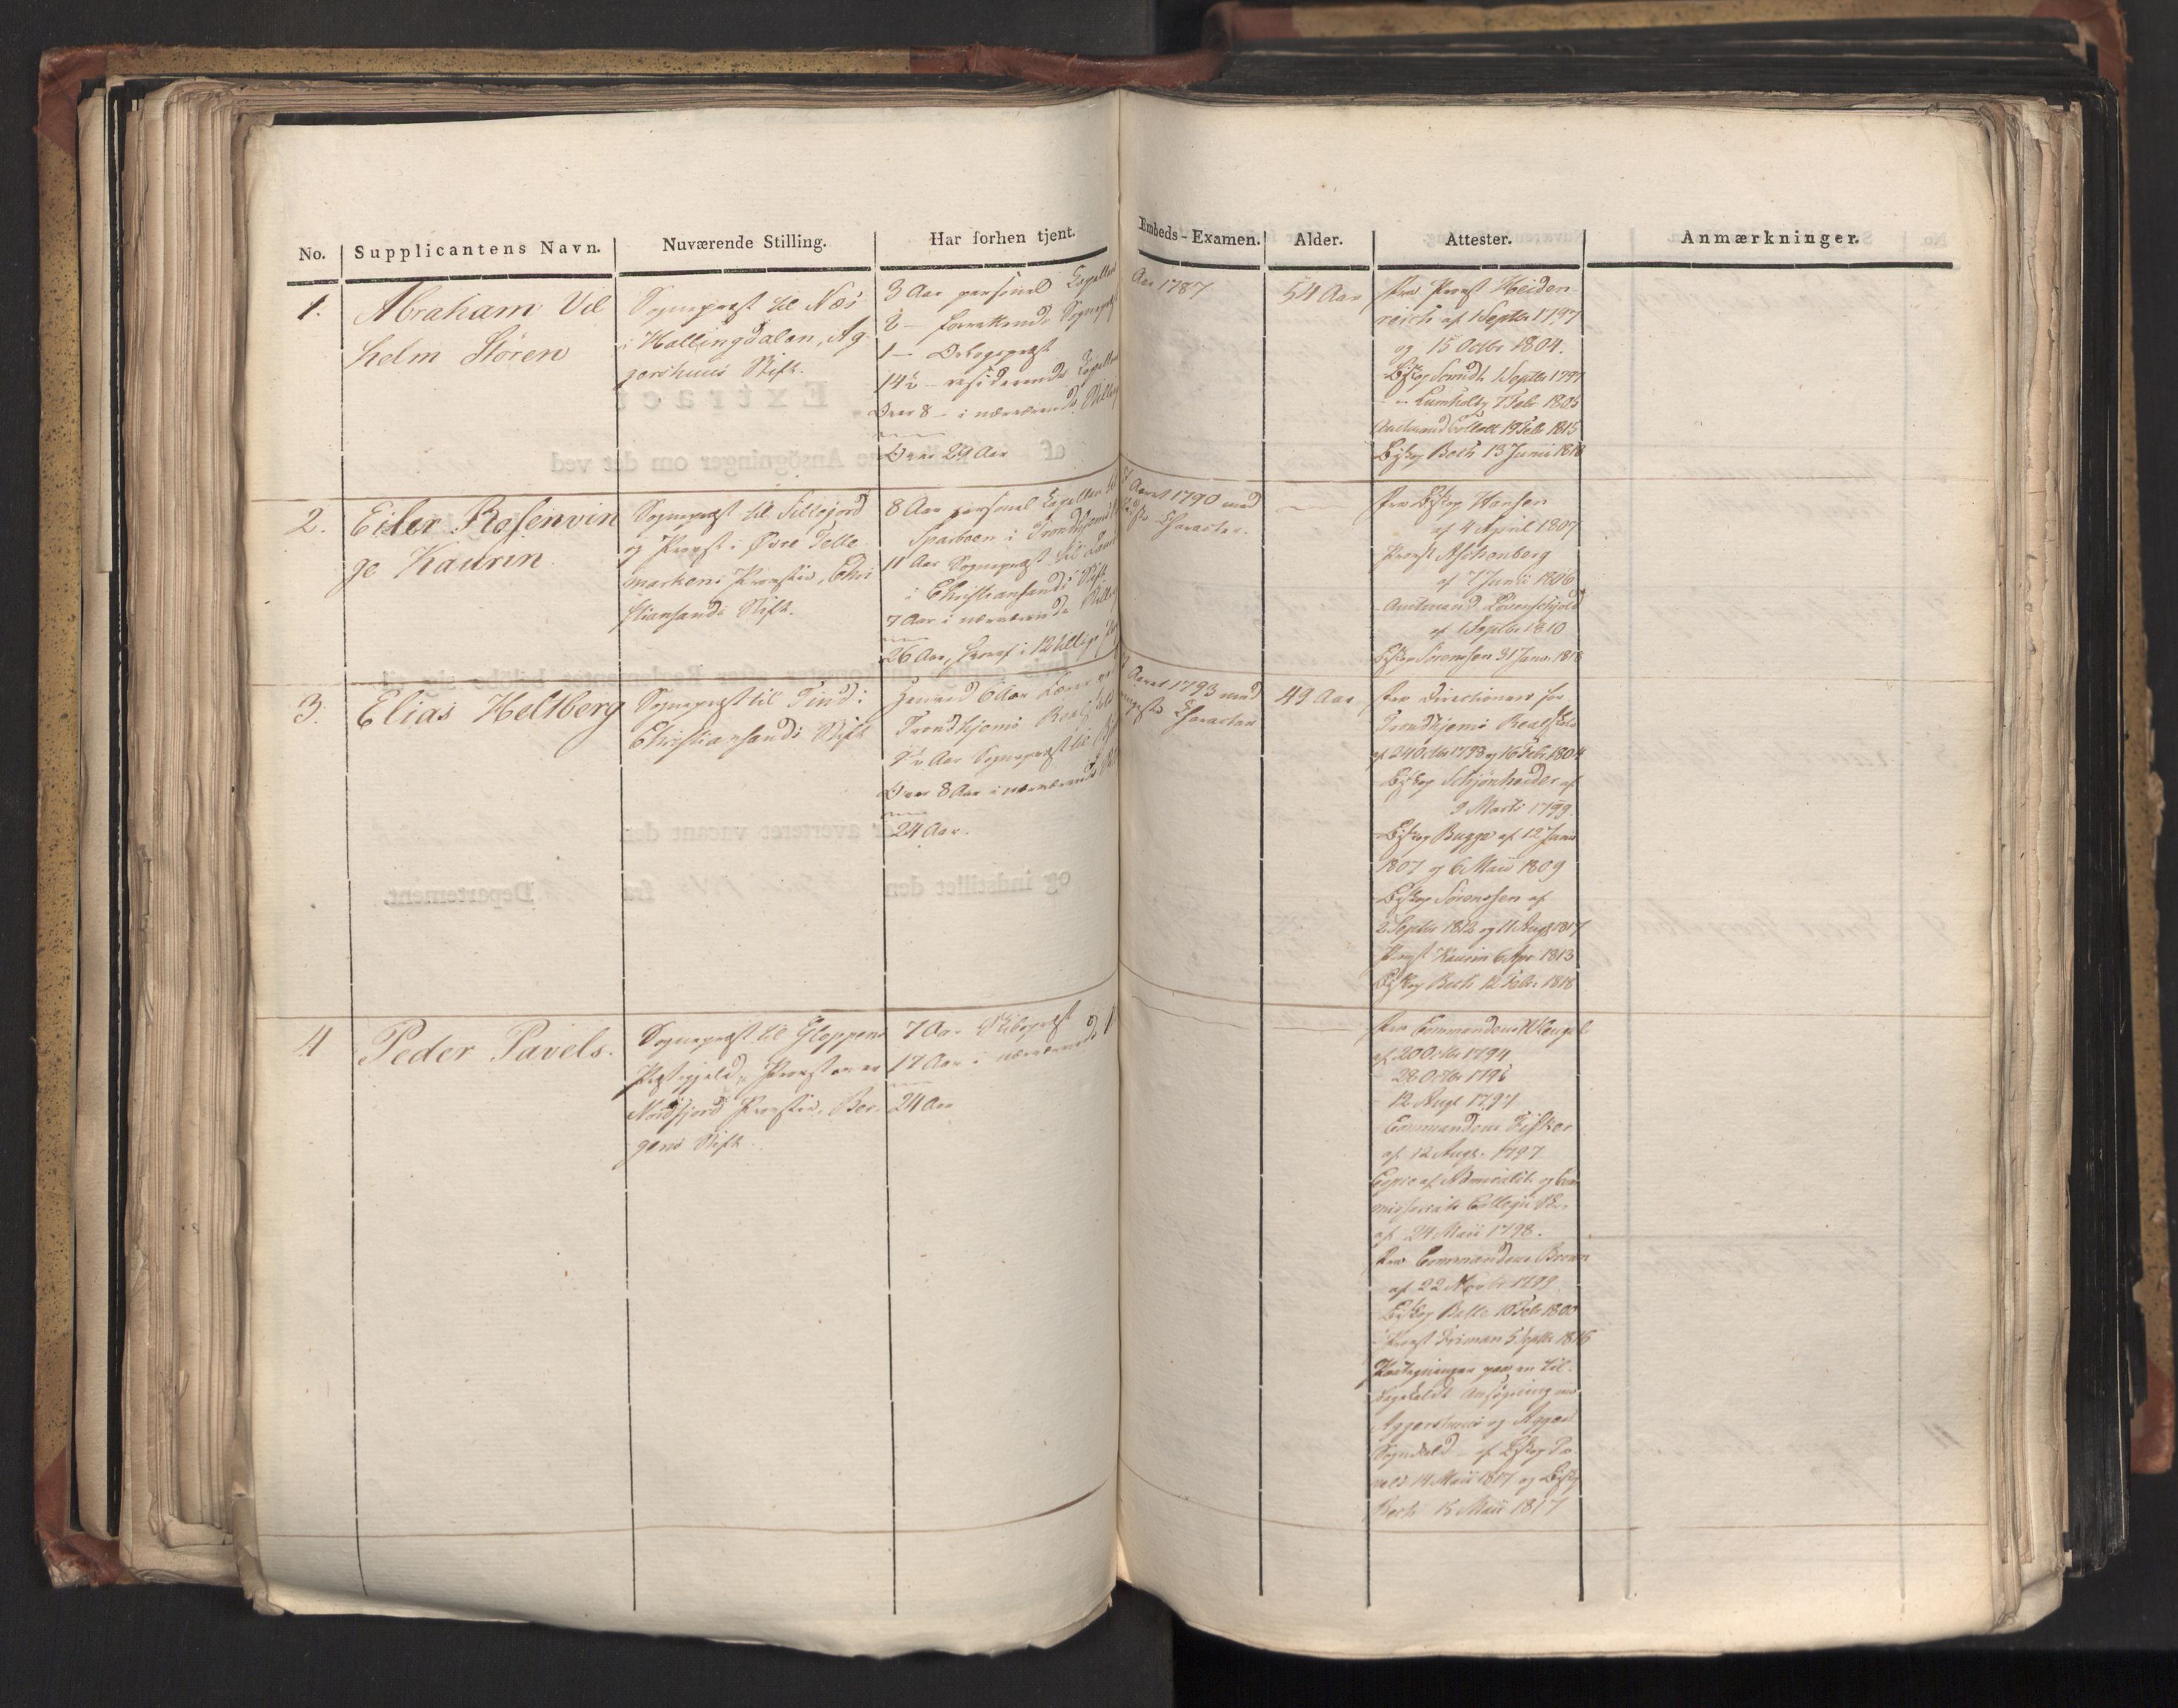 No.
Supplicantens Navn.
Nuværende Stilling.
Har forhen tjent.
Embeds-Examen.
Alder.
Attester.
Anmærkninger.
1.
Abraham Vil
helm Stören
Sognepræst til Næs
i Hallingdalen, Ag
gershuus Stift.
3 Aar personel Capellan
2 — Sognepræst
1 —
14½ — residerende Capellan
Over 8 — i nærværende Stilling
Over 29 Aar
Aar 1787
54 Aar
Fra Provst Heiden
reich af 1 Septbr 1797
og 15 Octbr 1804.
Biskop Smidt 1 Septbr 1797
— Lumholtz 7 Febr 1805
Amtmand Collett 19 Febr 1815
Biskop Bech 13 Junii 1818
2.
Eiler Rosenvin
ge Kaurin
Sognepræst til Sillejord
og Provst i Øvre Telle
markens Provstie, Chri
stiansands Stift.
8 Aar personel Capellan til
Sparboen i Trondhjems
11 Aar Sognepræst til
i Christiansands Stift
7 Aar i nærværende Stilling
26 Aar, Provst i 12
Aaret 1790 med
Character.
Fra Biskop Hansen
af 4 April 1807
Provst Aschenberg
af 7 Junii 1806
Amtmand Løvenskjold
af 1 Septbr 1810
Biskop Sörenssen 31 Janr. 1818
3.
Elias Heltberg
Sognepræst til Tind i
Christiansands Stift
6 Aar Lærer ved
Trondhjems Realskole
Aar Sognepræst til
Over 8 Aar i nærværende
24 Aar.
Aaret 1793 med
Character
49 Aar
Fra Directionen for
Trondhjems Realskole
af 24 Octbr 1798 og 16 Febr 1804
Biskop Schjönheider af
9 Marts 1799.
Biskop Bugge af 12 Janr
1807 og 6 Maii 1809
Biskop Sörenssen af
2 Septbr 1812 og 11 Aug 1817
Provst Kaurin 6 Apr 1813
Biskop Bech 12 Febr 1818
4
Peder Pavels.
Sognepræst til Gloppens
Præstegjeld, Provst over
Nordfjord Provstie, Ber-
gens Stift.
7 Aar Skibspræst
17 Aar i nærværende
24 Aar
Fra Commandeur
af 20 Octbr 1794
28 Octbr 1796
12 Augt 1797
Commandeur Fisker
af 12 Augt. 1797
Copie af Admiralit. og Com
missariats Collegii
af 24 Maii 1798.
Fra Commandeur
af 22 1799
Biskop 10 Febr 1800
Provst Friman 5 Septbr 1816
Paategninger paa en til-
bagekaldt Ansøgning om
Aggershuus og Aggers
Sognekald af Biskop Pa
vels 14 Maii 1817 og Biskop
Bech 15 Maii 1817